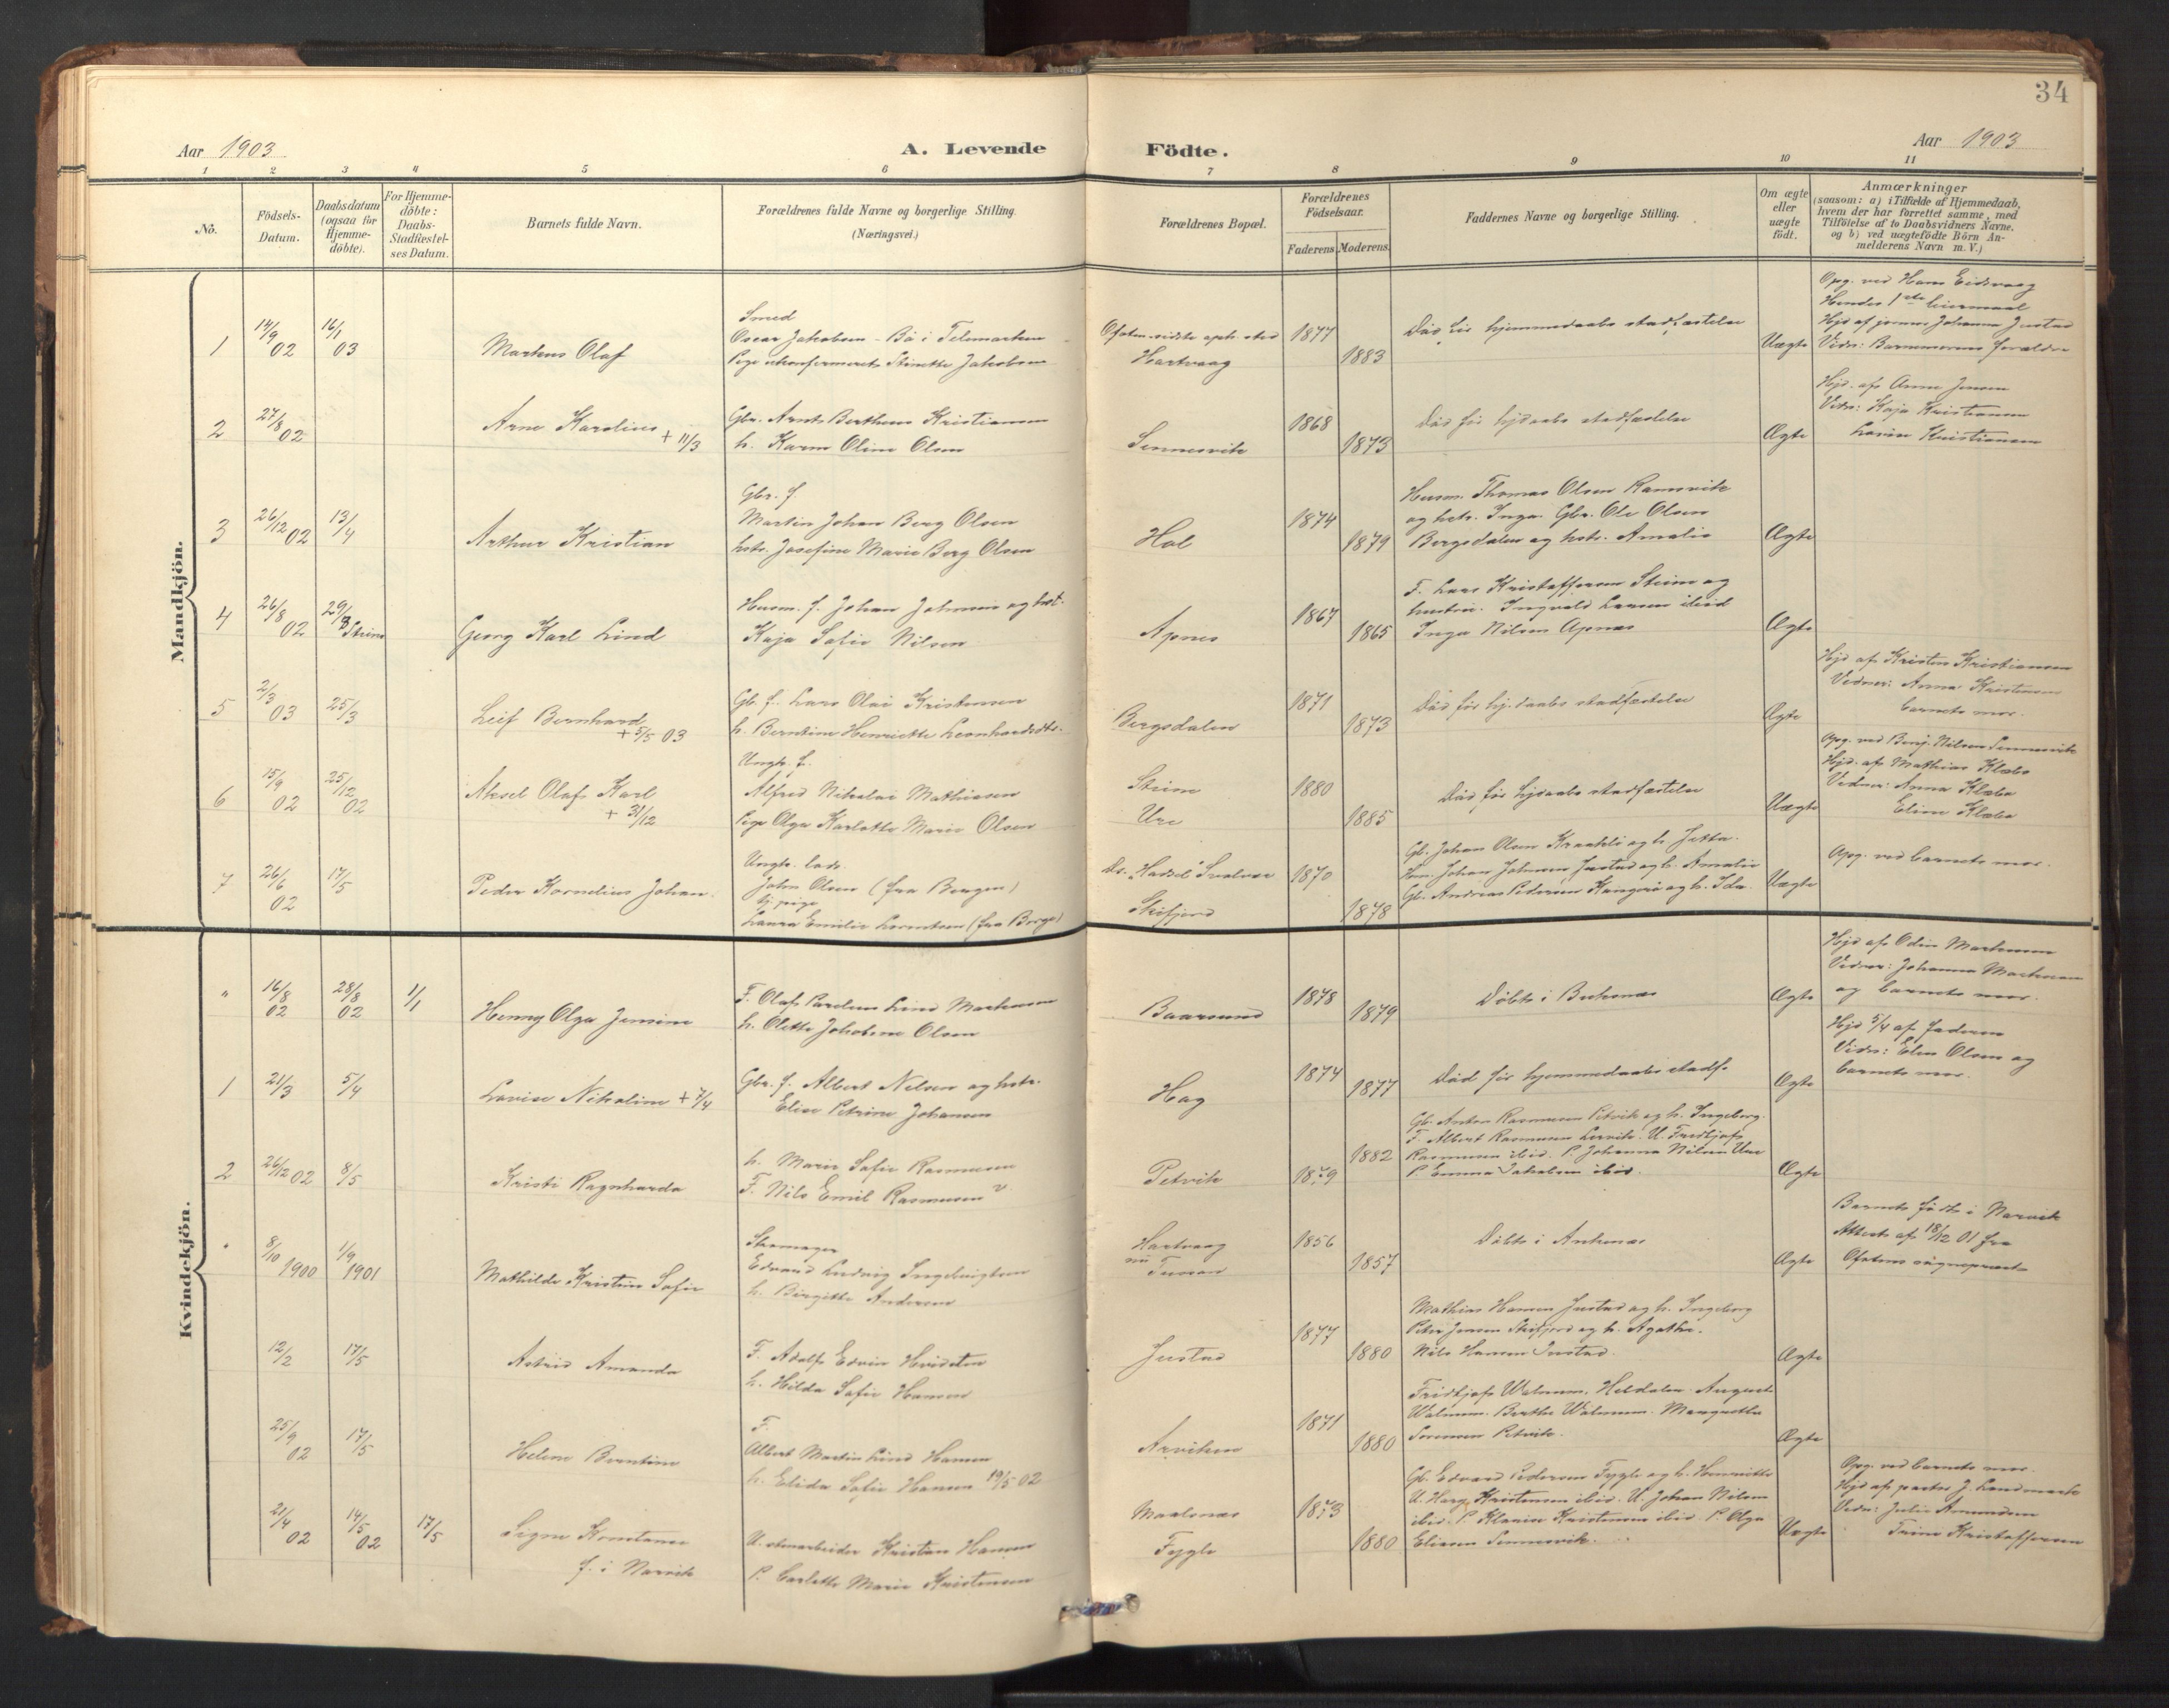 34
Aar 1903
A. Levende
Födte.
Aar 1903
1 2 3 4 5 6 7 8 9 10 11
No.
Födsels-
Datum.
Daabsdatum
(ogsaa for
Hjemme-
döbte).
For Hjemme-
döbte:
Daabs-
Stadfæstel-
ses Datum.
Barnets fulde Navn.
Forældrenes fulde Navne og borgerlige Stilling.
(Næringsvei.)
Forældrenes Bopæl.
Forældrenes
Födselsaar.
Faderens
Moderens
Faddernes Navne og borgerlige Stilling.
Om ægte
eller
uægte
födt.
Anmærkninger
(saasom: a) i Tilfælde af Hjemmedaab,
hvem der har forrettet samme, med
Tilföielse af to Daabsvidners Navne.
og b) ved uægtefödte Börn An-
melderens Navn m. V.)
Mandkjön.
1 14/9 02 16/1 03
Markus Olaf
Smed
Oscar Jakobsen - Bö i Telemarken
Pige ukonfirmeret Stinette Jakobsen
Ofoten sidste oph. sted
Hartvaag
1877
1883
Död för hjemmedaabs stadfæstelse
Uægte
Opg. ved Hans Eidsvaag
Hendes 1ste leiermaal
Hjd af jomfru Johanna Justad
Vidn: Barnemorens forældre
2 27/8 02
Arne Karolius + 11/3
Gbr. Arnt Bertheus Kristiansen
h. Karen Oline Olsen
Sennesvik
1868
1873
Död för hjdaabs stadfæstelse
Ægte
Hjd. af Anne Jensen
Vidn: Kaja Kristiansen
Lovise Kristiansen
3 26/12 02 13/4
Arthur Kristian
Gbr. f.
Martin Johan Berg Olsen
hstr. Josefine Marie Berg Olsen
Hol
1874
1879
Husm. Thomas Olsen Ramsvik
og hstr. Inga. Gbr. Ole Olsen
Bergsdalen og hstr. Amalie
Ægte
4 26/8 02 29/3 Stene
Georg Karl Lind
Husm. f. Johan Johnsen og hst.
Kaja Sofie Nilsen
Apnes
1867
1865
F. Lars Kristoffersen Steine og
hustru. Ingvald Larsen ibid
Inga Nilsen Apnæs
Ægte
5 2/3 03 25/3
Leif Bernhard
+ 5/5 03
Gb. f. Lars Olai Kristensen
h. Berntine Henriette Leonhardsdtr.
Bergsdalen
1871
1873
Död för hj. daabs stadfæstelse
Ægte
Hjd af Kristen Kristiansen
Vidner: Anna Kristensen
barnets mor.
6 15/9 02 25/12 02
Aksel Olaf Karl
+ 31/12
Ungk. f.
Alfred Nikolai Mathisen
Pige Olga Karlotte Marie Olsen
Steine
Ure
1880
1885
Död för hjdaabs stadfæstelse
Uægte
Opg. ved Benj. Nilsen Sennesvik
Hjd. af Mathias Klæbo
Vidner: Anna Klæbo
Eline Klæbo
7 26/6 02 17/5
Peder Kornelius Johan.
Ungk. lods.
John Olsen (fra Bergen)
tj. pige
Laura Emilie Lorentsen (fra Borge)
Ds. "Hadsel" Svolvær
Skifjord
1870
1878
Gb. Johan Olsen Kraakli og h. Jetta.
Hm. Johan Johnsen Justad og h. Amalie
Gb. Andreas Pedersen Kangerö og h. Ida.
Uægte
Opg. ved barnets mor.
Kvindekjön.
" 16/8 02 28/8 02 1/1
Henny Olga Jensine
F. Olaf Parelius Lind Martensen
h. Olette Jakobine Olsen
Baarsund
1878
1879
Döbt i Buksnæs
Ægte
Hjd af Odin Martensen
Vidner: Johanna Martensen
og barnets mor.
1 21/3 5/4
Lovise Nikoline + 7/4
Gbr. f. Albert Nilsen og hstr.
Elise Petrine Johansen
Hag
1874
1877
Död för hjemmedaabs stadf.
Ægte
Hjd 5/4 af faderen
Vidn: Elen Olsen og
barnets mor.
2 26/12 02 8/5
Kristi Ragnharda
h. Marie Sofie Rasmussen
F. Nils Emil Rasmussen
Petvik
1882
1879
Gb. Anton Rasmussen Petvik og h. Ingeborg.
F. Albert Rasmussen Lervik. U. Fridtjof
Rasmussen ibid. P. Johanna Nilsen Ure
P. Emma Jakobsen ibid.
Ægte
" 8/10 1900 1/9 1901
Mathilde Kristine Sofie
Skomager
Edvard Ludvig Ingebrigtsen
h. Birgitte Andersen
Hartvaag
nu Tussan
1856
1857
Döbt i Ankenæs
Ægte
Barnet födt i Narvik
Attest af 18/12 01 fra
Ofotens sogneprest
12/2 17/5
Astrid Amanda
F. Adolf Edvin Hvidsten
h. Hilda Sofie Hansen
Justad
1877
1880
Mathias Hansen Justad og h. Ingeborg
Peter Jensen Skifjord og h. Agathe.
Nils Hansen Justad.
Ægte
25/9 02 17/5
Helene Berntine
F.
Albert Martin Lind Hansen
h. Elida Sofie Hansen 19/5 02
Arviken
1871
1880
Fridtjof Walmann, Heldalen. August
Walmann. Berthe Walmann. Margrethe
Sörensen Petvik.
Ægte
21/4 02 14/5 02 17/5
Signe Konstanse
f. i Narvik
U. stenarbeider Kristian Hansen
P. Carlotte Marie Kristensen
Maalsnæs
Fygle
1873
1880
Gb. Edvard Pedersen Fygle og h. Henriette
U. Harg Kristensen ibid. U. Johan Nilsen
ibid. P. Klarise Kristensen ibid. P. Olga
Eliasen Sennesvik.
Uægte
Opg. ved barnets mor.
Hjd af pastor J. Landmark
Vidn: Julie Amundsen
Trine Kristoffersen